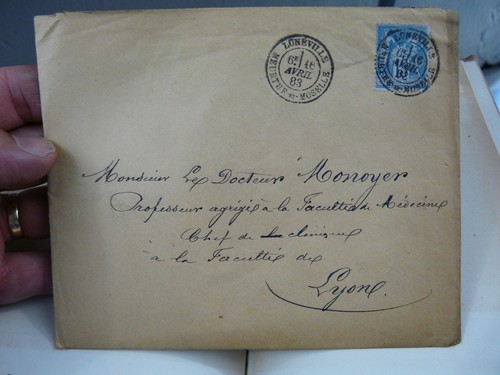 LUNÉVILLE
6E 16
AVRIL
83
MEURTHE-ET-MOSELLE
LUNÉVILLE
6E 16
AVRIL
83
MEURTHE-ET-MOSELLE
Monsieur Le Docteur Monoyer
Professeur agrégé à la Faculté de Médecine
Chef de clinique
à la Faculté de
Lyon.